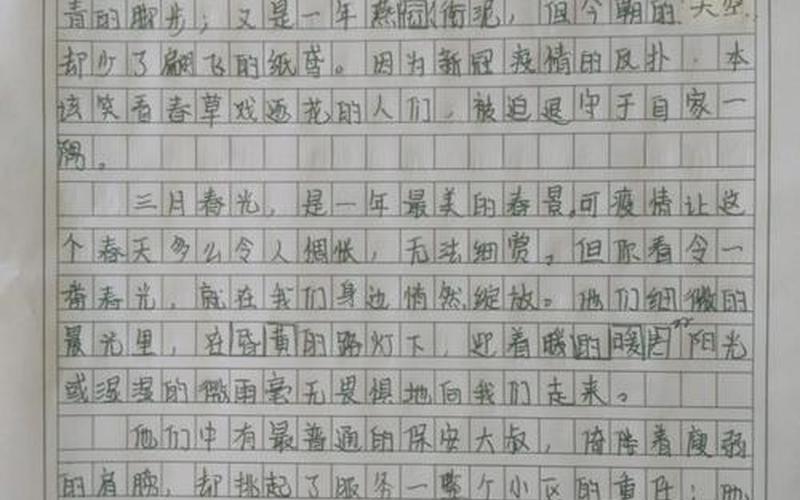 青的脚步；又是一年燕回衔泥，但今朝的天空，
却少了翩飞的纸鸢。因为新冠疫情的反扑，本
该笑看春草戏迷花的人们，被迫退守于自家一
隅。
三月春光，是一年最美的春景，可疫情让这
个春天多么令人惆怅，无法细赏。但你看令一
番春光，就在我们身边悄然绽放。他们细微的
晨光里，在昏黄的路灯下，迎着暖的暖阳光
或湿湿的微雨毫无畏惧地向我们走来。
他们中有最普通的保安大叔，倚着瘦弱
的肩膀，却挑起了服务一整个小区的重任；